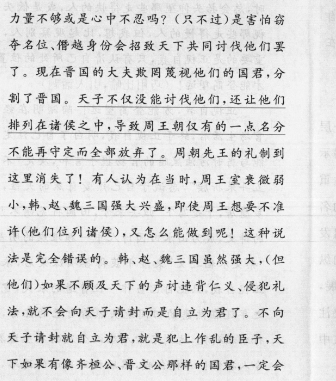 力量不够或是心中不忍吗？（只不过）是害怕窃
夺名位、僭越身份会招致天下共同讨伐他们罢
了。现在晋国的大夫欺罔蔑视他们的国君，分
割了晋国。天子不仅没能讨伐他们，还让他们
排列在诸侯之中，导致周王朝仅有的一点名分
不能再守定而全部放弃了。周朝先王的礼制到
这里消失了！有人认为在当时，周王室衰微弱
小，韩、赵、魏三国强大兴盛，即使周王想要不准
许（他们位列诸侯），又怎么能做到呢！这种说
法是完全错误的。韩、赵、魏三国虽然强大，（但
他们）如果不顾及天下的声讨违背仁义、侵犯礼
法，就不会向天子请封而是自立为君了。不向
天子请封就自立为君，就是犯上作乱的臣子，天
下如果有像齐桓公、晋文公那样的国君，一定会